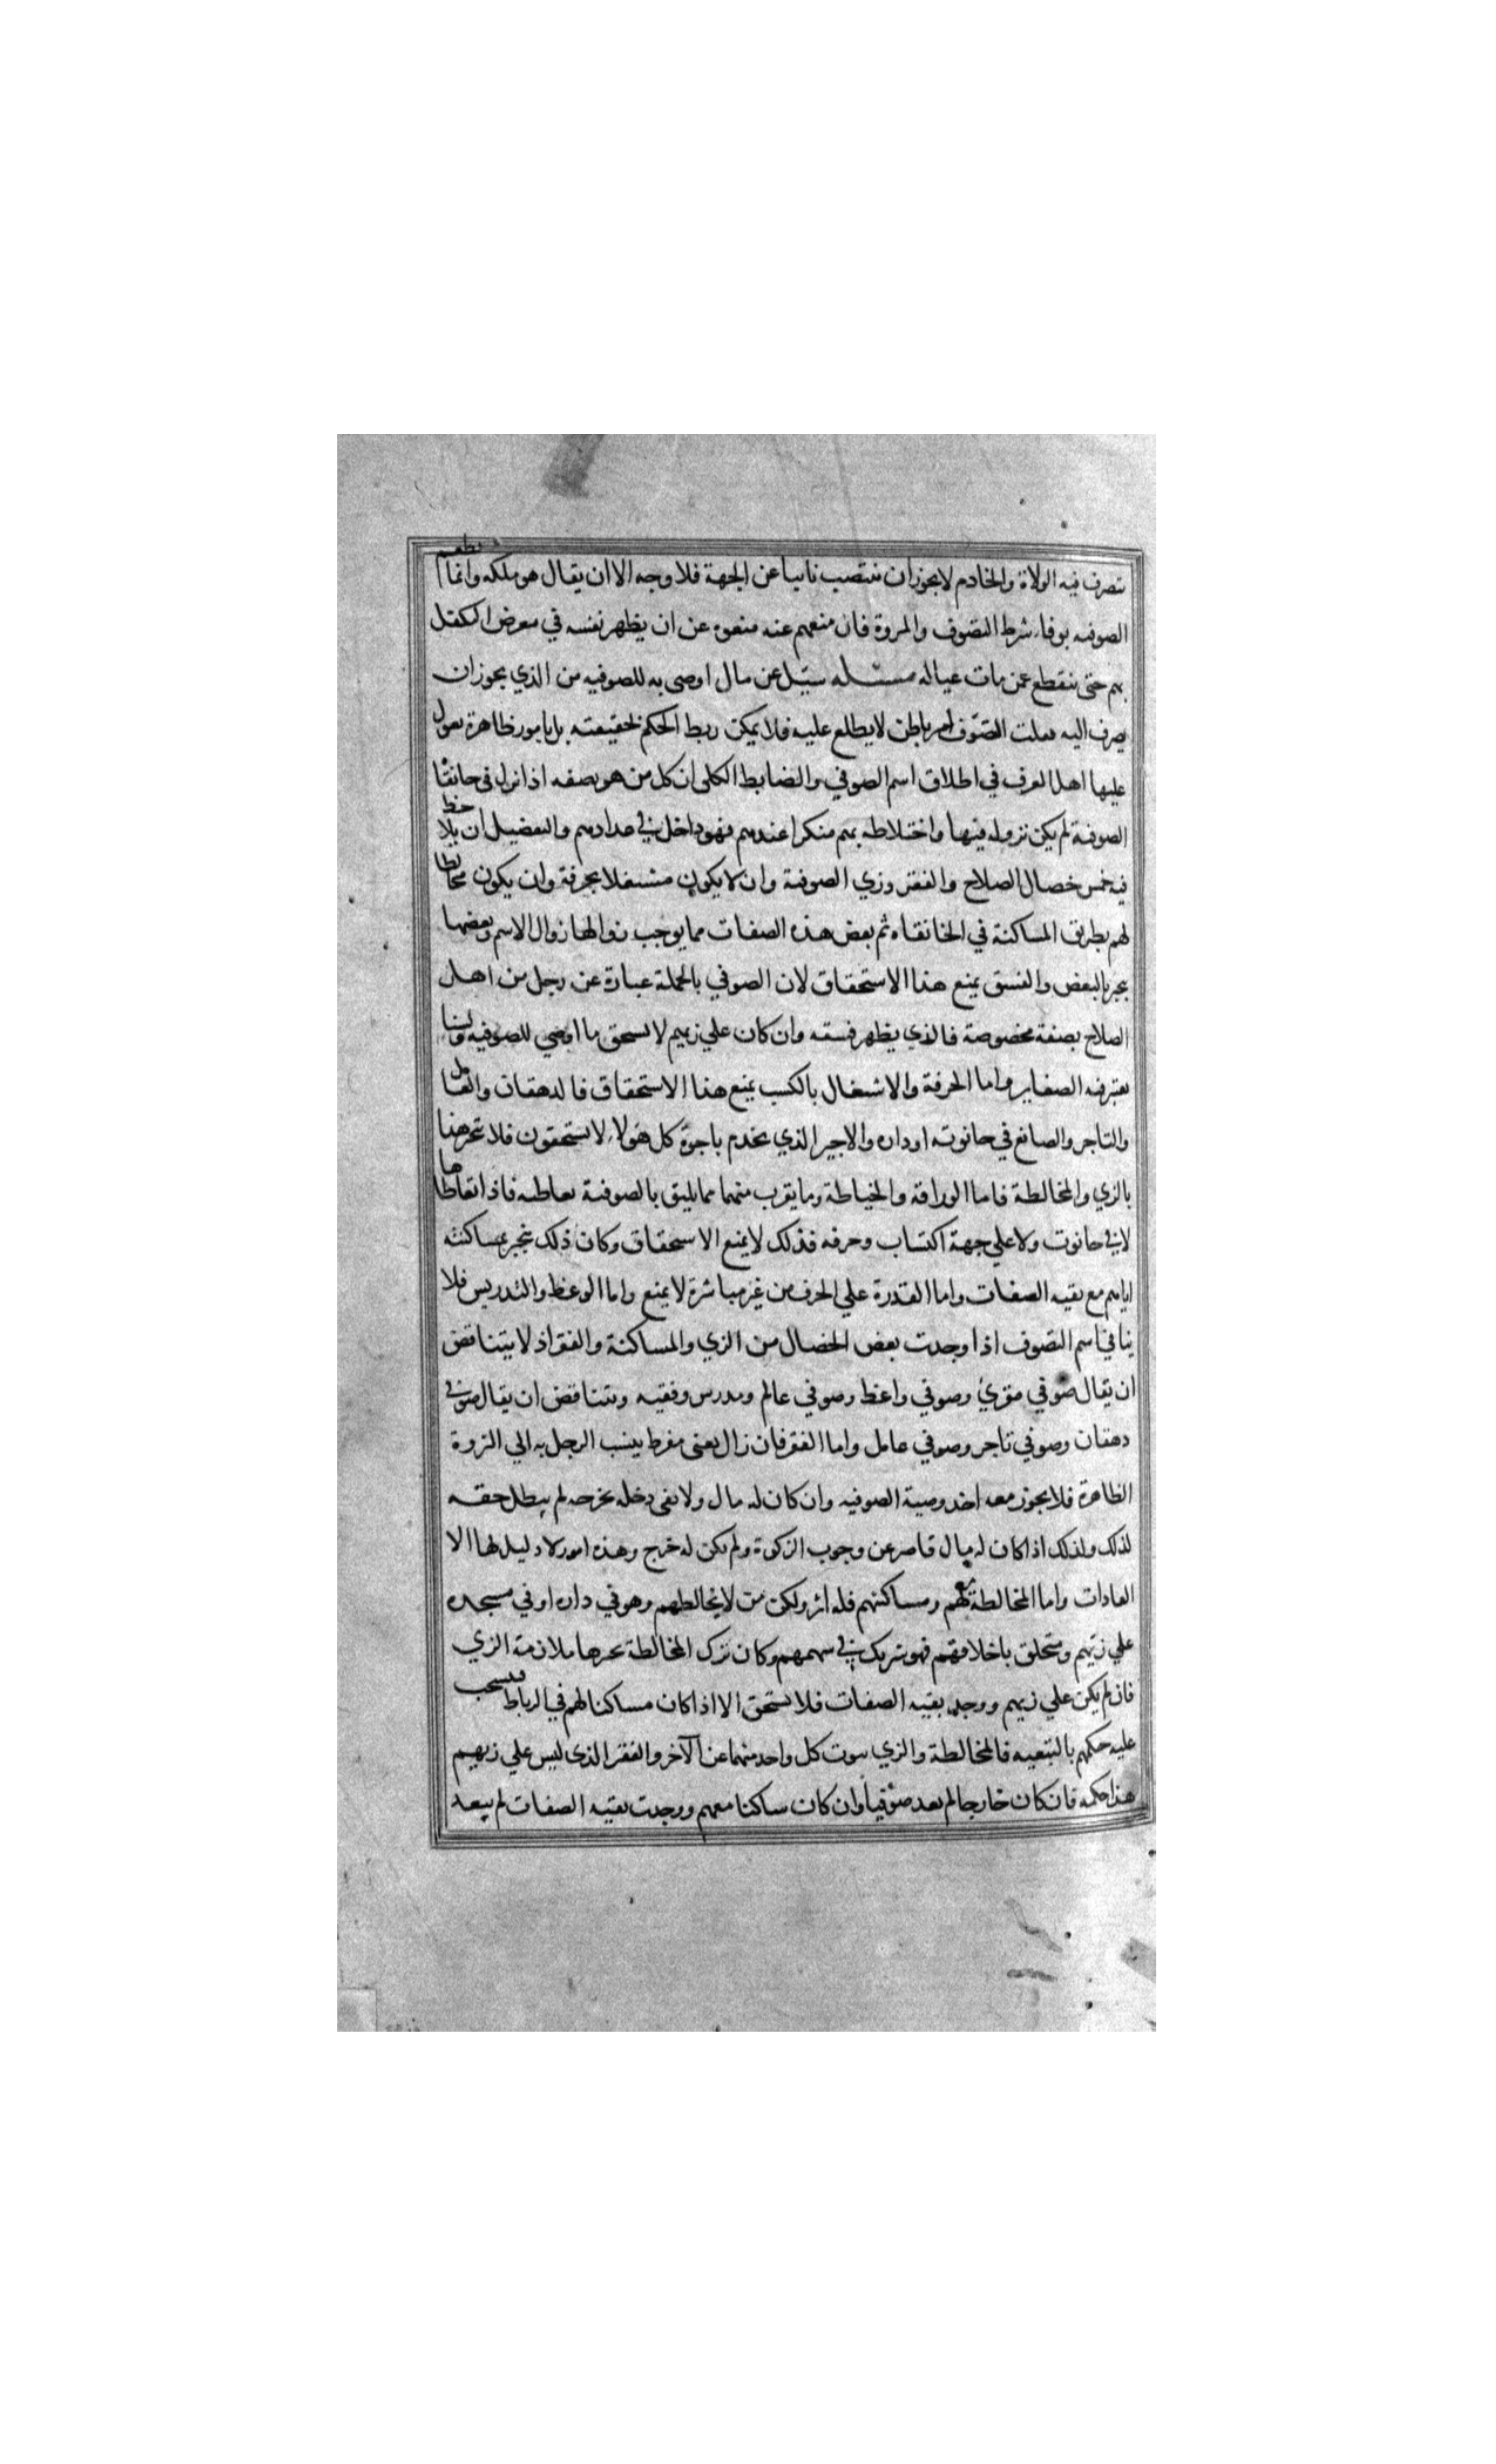 تتصرف فيه الولاة والخادم لا يجوز ان ينتصب نايبا عن الجهة فلا وجه الا ان يقال هو ملكه وانما يطعم
الصوفيه بوفاء شرط التصوف والمروة فان منعهم عنه منعوه عن ان يظهر نفسه في معرض التكفل
بهم حتى ينقطع عمن مات عياله مسئله سئل عن مال اوصى به للصوفيه من الذي يجوز ان
يصرف اليه فقلت التصوف امر باطن لا يطلع عليه فلا يمكن ربط الحكم بحقيقته بل بامور ظاهرة يعول
عليها اهل العرف في اطلاق اسم الصوفي والضابط الكلي ان كل من هو بصفه اذا نزل في خانقاه
الصوفية لم يكن نزوله فيها واختلاطه بهم منكرا عندهم فهو داخل في عدادهم والتفصيل ان يلاحظ
فيه خمس خصال الصلاح والفقر وزي الصوفية وان لا يكون مشتغلا بحرفة وان يكون مخالطا
لهم بطريق المساكنة في الخانقاه ثم بعض هذه الصفات مما يوجب زوالها زوال الاسم وبعضها
يجبر بالبعض والفسق يمنع هذا الاستحقاق لان الصوفي بالجملة عبارة عن رجل من اهل
الصلاح بصفة مخصوصة فالذي يظهر فسقه وان كان علي زيهم لا يستحق ما اوصي للصوفيه ولسنا
نعتبر فيه الصغاير واما الحرفة والاشتغال بالكسب يمنع هذا الاستحقاق فالدهقان والعامل
والتاجر والصانع في حانوته او داره والاجير الذي يخدم باجرة كل هولاء لا يستحقون فلا ينجبر هذا
بالزي والمخالطة فاما الوراقة والخياطة وما يقرب منهما مما يليق بالصوفية تعاطيه فاذا تعاطاها
لا في حانوت ولا علي جهة اكتساب وحرفه فذلك لا يمنع الاستحقاق وكان ذلك ينجبر بمساكنته
اياهم مع بقيه الصفات واما القدرة علي الحرف من غير مباشرة لا يمنع واما الوعظ والتدريس فلا
ينافي اسم التصوف اذا وجدت بعض الخصال من الزي والمساكنة والفقر اذ لا يتناقض
ان يقال صوفي مقرئ وصوفي واعظ وصوفي عالم ومدرس وفقيه ويتناقض ان يقال صوفي
دهقان وصوفي تاجر وصوفي عامل واما الفقر فان زال بغنى مفرط ينسب الرجل به الي الثروة
الظاهرة فلا يجوز معه اخذ وصية الصوفيه وان كان له مال ولا يفي دخله بخرجه لم يبطل حقه
لذلك ولذلك اذا كان له مال قاصر عن وجوب الزكوة ولم يكن له خرج وهذه امور لا دليل لها الا
العادات واما المخالطة لهم ومساكنتهم فله اثر ولكن من لا يخالطهم وهو في داره او في مسجده
علي زيهم ومتخلق باخلاقهم فهو شريك في سهمهم وكان ترك المخالطة يجبرها ملازمة الزي
فان لم يكن علي زيهم ووجد بقيه الصفات فلا يستحق الا اذا كان مساكنا لهم في الرباط فينسحب
عليه حكمهم بالتبعيه فالمخالطة والزي ينوب كل واحد منهما عن الآخر والفقر الذي ليس علي زيهم
هذا حكمه فان كان خارجا لم يعد صوفيا وان كان ساكنا معهم ووجدت بقيه الصفات لم يبعد